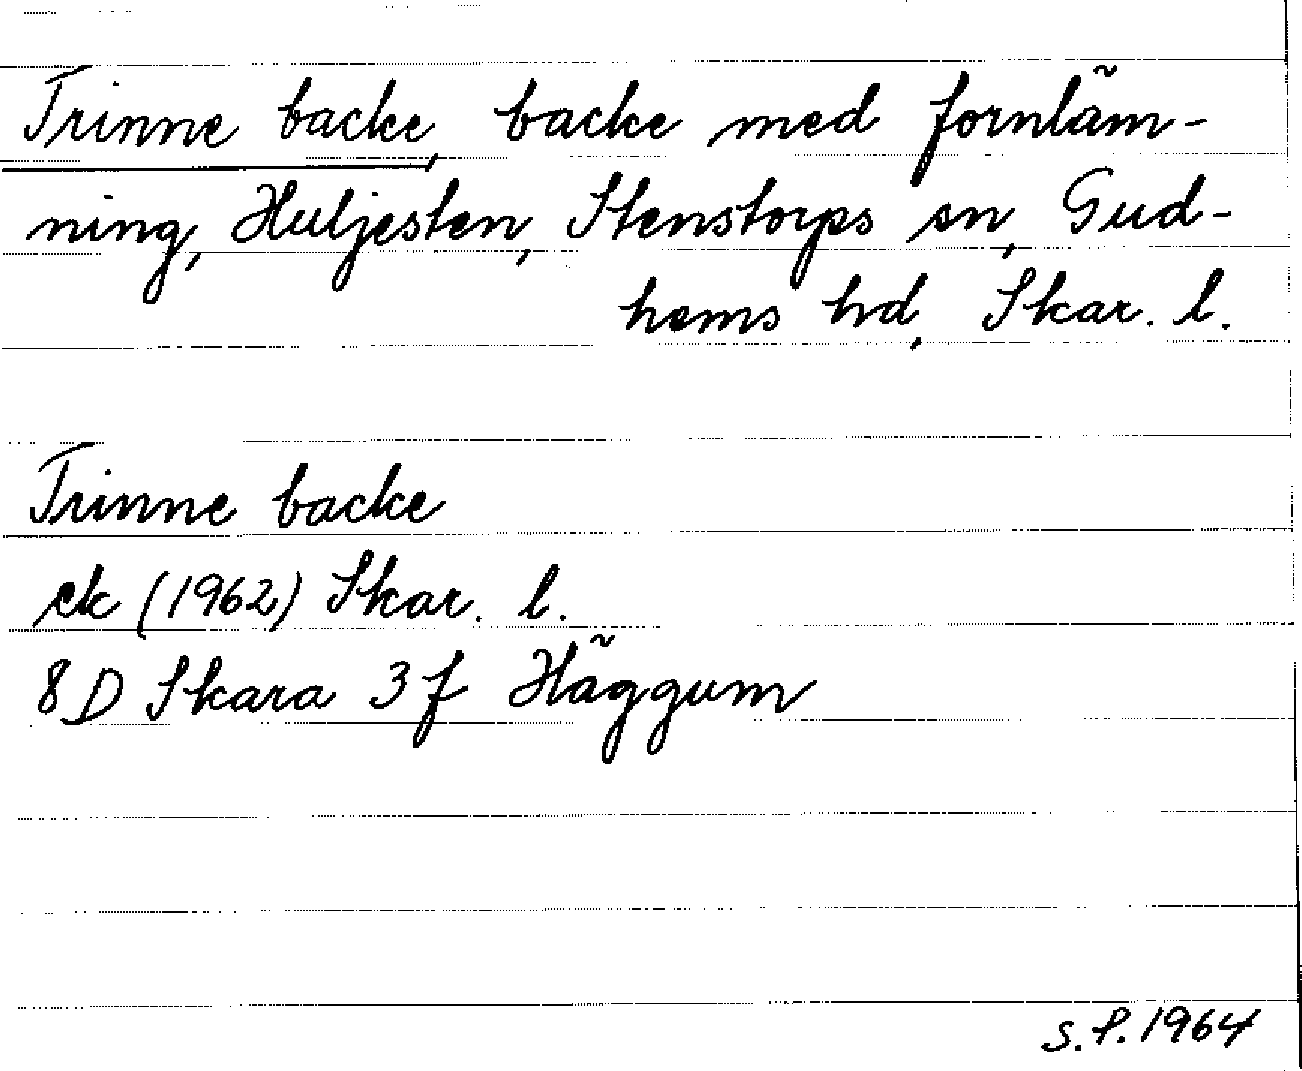 Trinne backe, backe med fornläm-
ning, Huljesten, Stenstorps sn, Gud-
hems hd, Skar. l.
Trinne backe
ek (1962) Skar. l.
8 D Skara 3 f Häggum
S.P. 1964